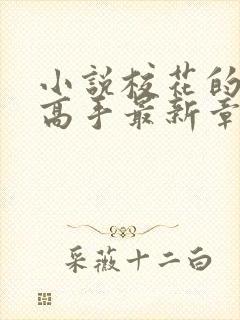 小說校花的
高手最新章
采薇十二白